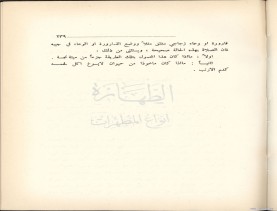 ٢٣٩
قارورة او وعاء زجاجي مغلق مثلاً ووضع القارورة او الوعاء في جيبه
فان الصلاة بهذه الحالة صحيحة ، ويستثنى من ذلك :
اولاً : ماإذا كان هذا المحمول بتلك الطريقة جزءاً من ميتة نجسة .
ثانياً : ماإذا كان مأخوذاً من حيوان لايسوغ اكل لحمه
كدم الأرنب .
الطهارة
انواع المطهرات